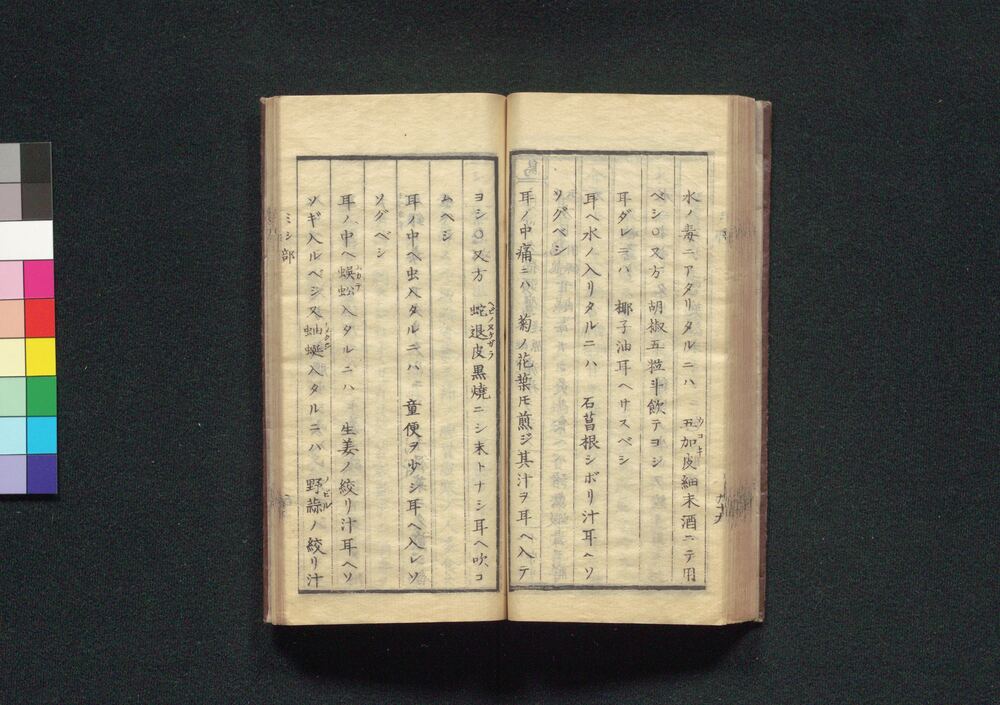 水ノ毒ニアタリタルニハ 五加皮細末酒ニテ用
ウコギ
ベシ○又方 胡椒五粒斗飲テヨシ
耳ダレニハ 椰子油耳ヘサスベシ
耳ヘ水ノ入リタルニハ 石菖根シボリ汁耳ヘソ
ソグベシ
耳ノ中痛ニハ 菊ノ花葉モ煎ジ其汁ヲ耳ヘ入テ
ヨシ○又方 蛇退皮黒焼ニシ末トナシ耳ヘ吹コ
ヘビノヌケガラ
ムヘシ
耳ノ中ヘ虫入タルニハ 童便ヲ少シ耳ヘ入レソ
ソグベシ
耳ノ中ヘ蜈蚣入タルニハ 生姜ノ絞リ汁耳ヘソ
ムカデ
ソギ入ルベシ又蚰蜒入タルニハ 野蒜ノ絞リ汁
ノビル
ミシ部